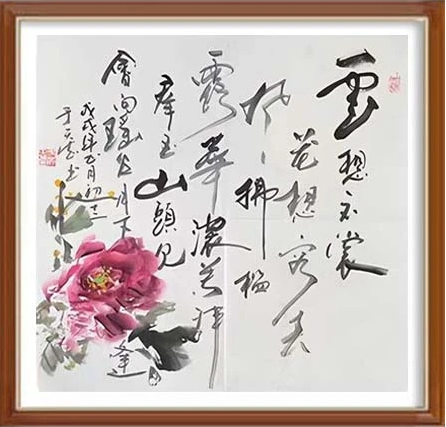 雲想衣裳
花想容春
風拂檻
露華濃若非
羣玉山頭見
會向瑤台月下逢
戊戌年月初三